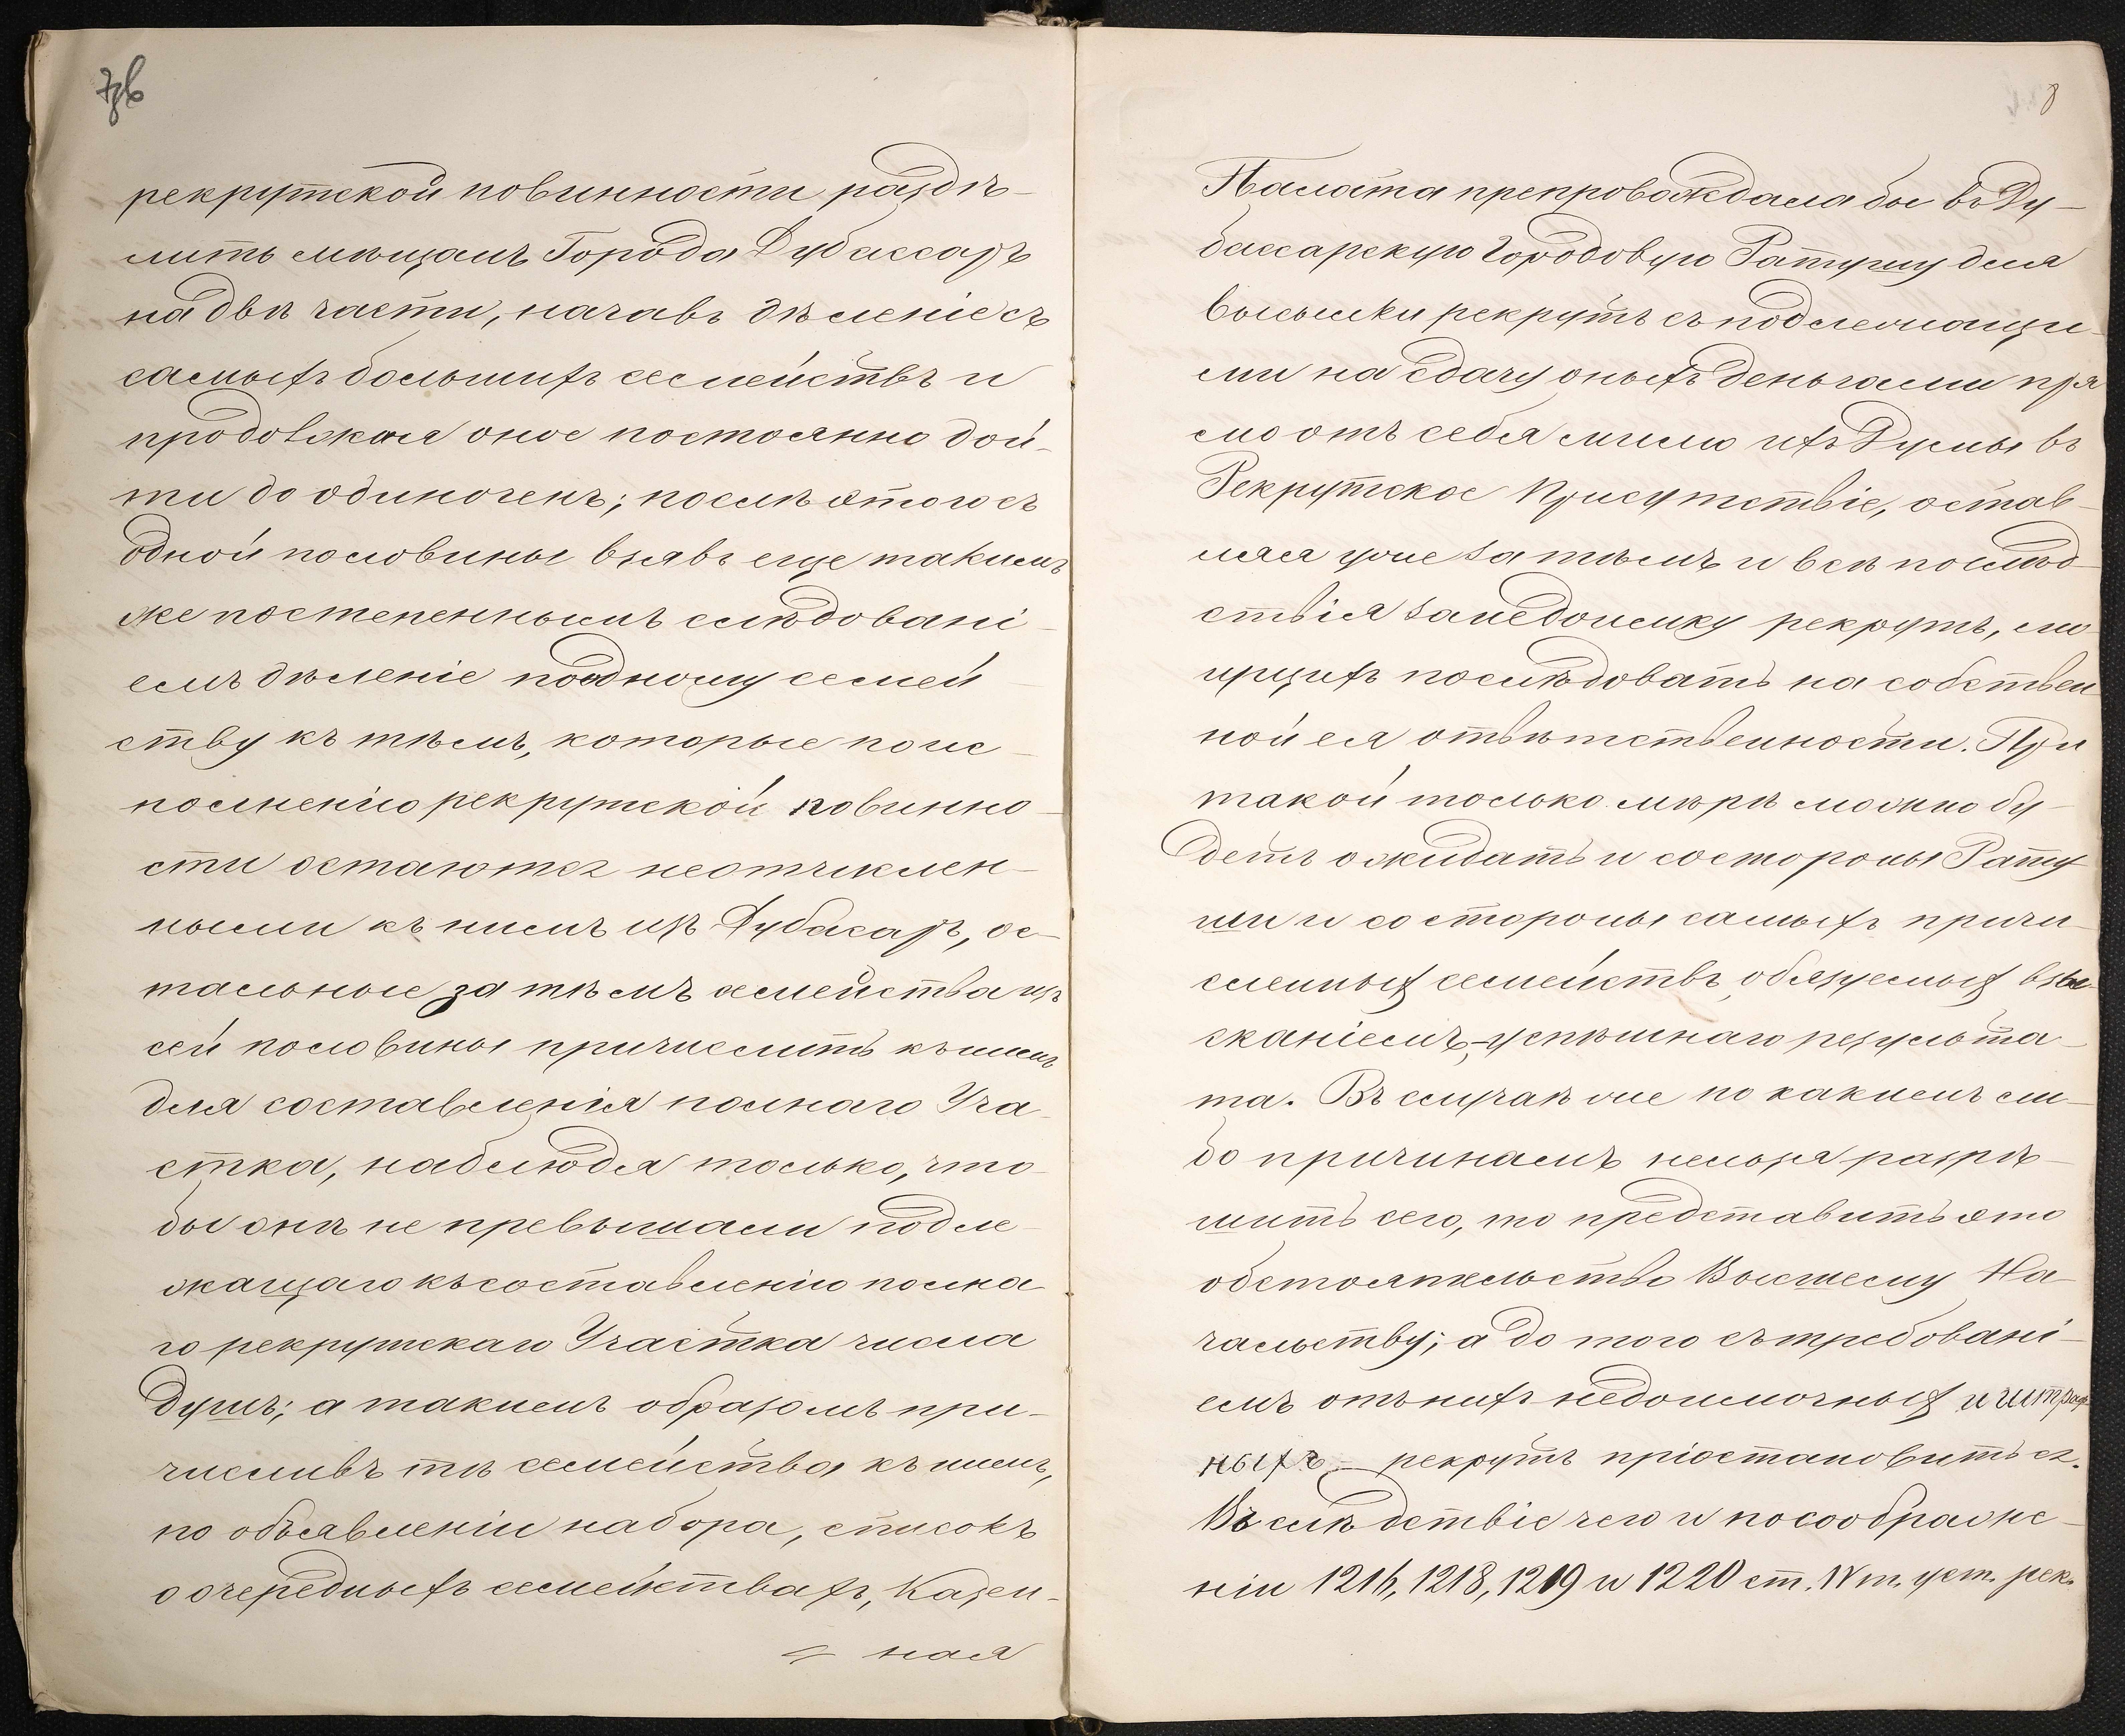 7в
рекрутской повинности раздѣ-
лить мѣщанъ Города Дубассаръ
на двѣ части, начавъ дѣленіе съ
самыхъ большихъ семействъ и
продолжая оное постоянно дой-
ти до одиночекъ; послѣ этого съ
одной половины взявъ еще такимъ
же постепеннымъ слѣдовані-
емъ дѣленіе поодному семей
ству къ тѣмъ, которые по ис-
полненію рекрутской повинно-
сти остаются неотчислен-
ными къ нимъ изъ Дубасаръ, ос-
тальные за тѣмъ семейства изъ
сей половины причислить къ нимъ
для составленія полнаго Уча-
стка, наблюдая только, что
бы онѣ не превышали подле-
жащаго къ составленію полна
го рекрутскаго Участка числа
Душъ; а такимъ образомъ при-
числивъ тѣ семейства къ нимъ,
по объявленіи набора, списокъ
о очередныхъ семействахъ, Казен-
ная
8
Палата препровождала бы въ Ду-
бассарскую Городовую Ратушу для
высылки рекрутъ съ подлежащи-
ми на сдачу оныхъ деньгами пря
мо отъ себя мимо ихъ Думы въ
Рекрутское Присутствіе, остав-
ляя уже за тѣмъ и всѣ послѣд-
ствія за недоимку рекрутъ, мо-
гущихъ послѣдовать на собствен
ной ея отвѣтственности. При
такой только мѣрѣ можно бу-
детъ ожидать и со стороны Рату
ши и со стороны самыхъ причи-
сленныхъ семействъ, обязуемыхъ взы-
сканіемъ, успѣшнаго результа-
та. Въ случаѣ же по какимъ ли-
бо причинамъ нельзя разрѣ-
шить сего, то представить это
обстоятельство Высшему На-
чальству; а до того съ требовані-
емъ отъ нихъ недоимочныхъ и штраф-
ныхъ – рекрутъ пріостановиться.
Въ слѣдствіе чего и по соображе-
ніи 1216, 1218, 1219 и 1220 ст. IV т. уст. рек.